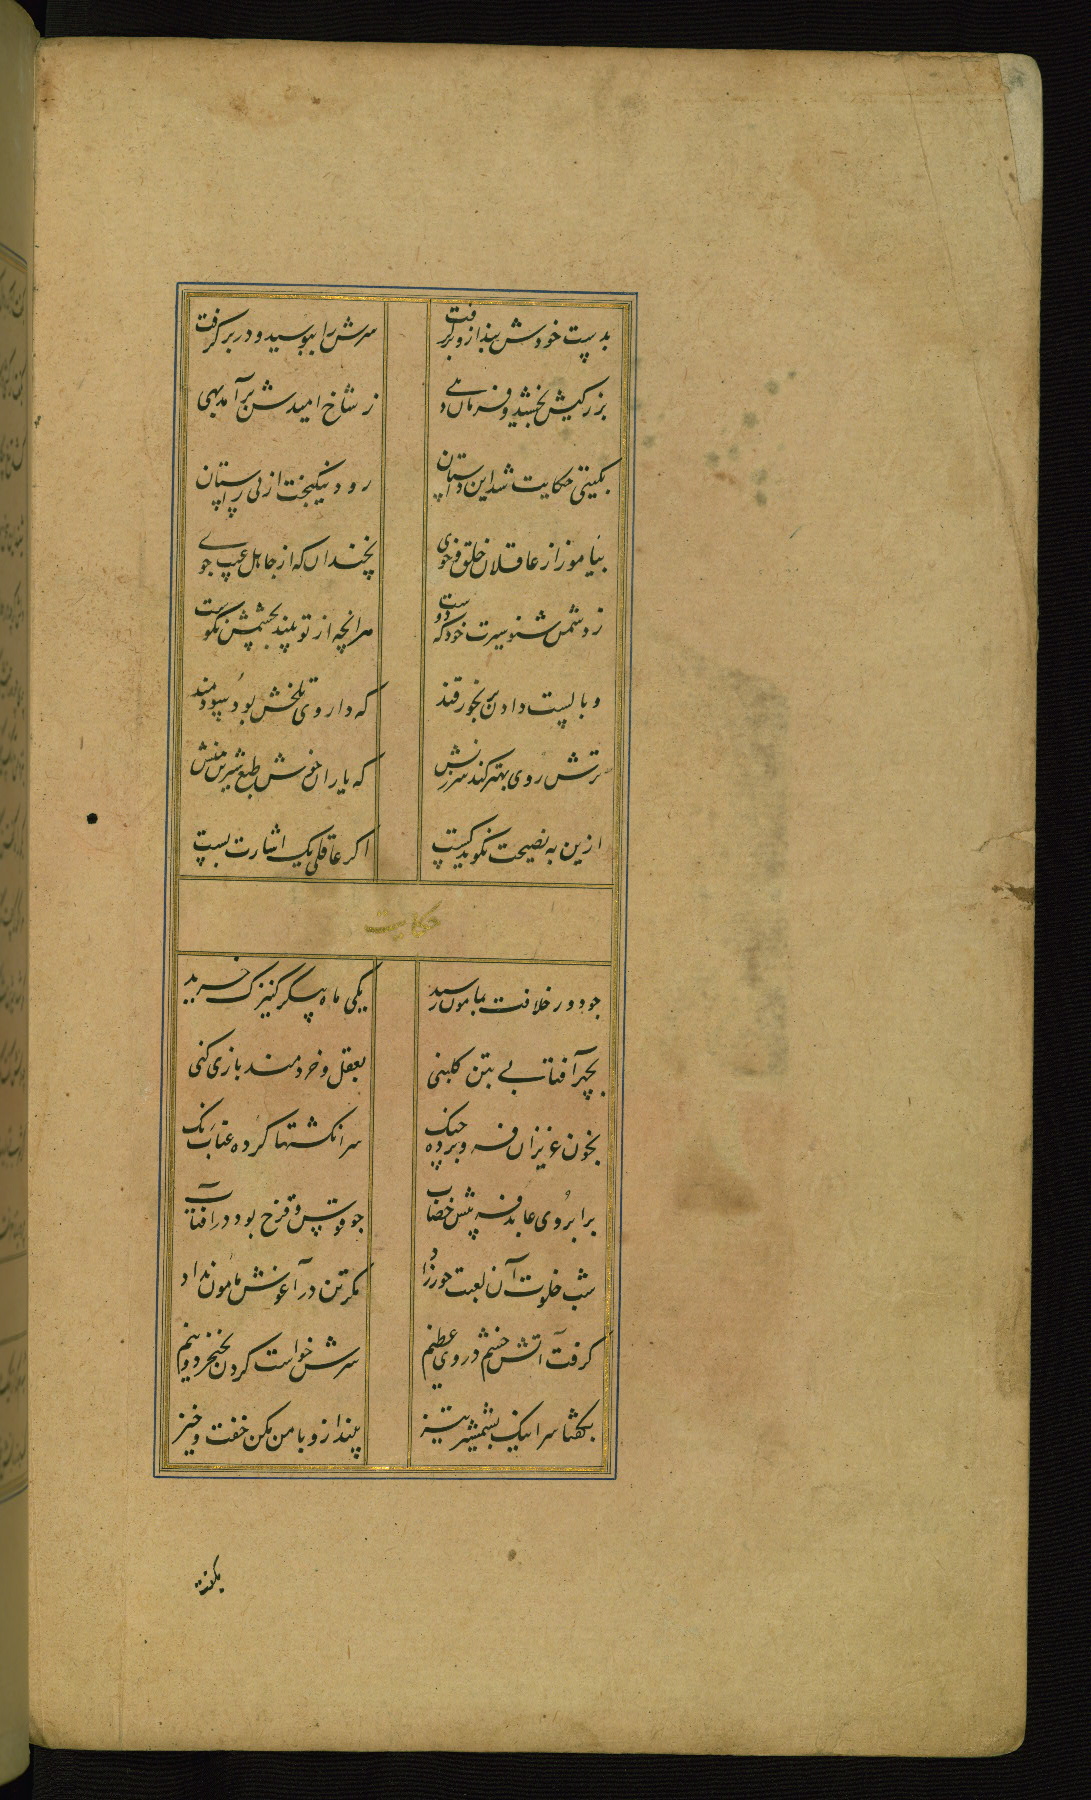 بدست خودش بند از و برگرفت سرش را ببوسید و در بر گرفت
بزرگیش بخشید و فرمان دهی ز شاخ امیدش برآمد بهی
بگیتی حکایت شد این داستان رود نیکبخت از پی راستان
بیاموز از عاقلان خلق و خوی نچندان که از جاهل عیب جوی
ز دشمن شنو سیرت خود که دوست هرانچه از تو بیند بچشمش نکوست
وبالست دادن برنجور قند که داروی تلخش بود سودمند
ترش روی بهتر کند سرزنش که یاران خوش طبع شیرین منش
ازین به نصیحت نگوید کست اگر عاقلی یک اشارت بست
حکایت
جو دور خلافت بمامون رسید یکی ماه پیکر کنیزک خرید
بچهر آفتابی بتن گلبنی بعقل و خردمند بازی کنی
بخون عزیزان فرو برده جنگ سر انگشتها کرده عناب رنگ
بر ابروی عابد فریبش خضاب جو قوس و قزح بود در آفتاب
شب خلوت آن لعبت حورزاد مگر تن در آغوش مامون نداد
گرفت آتش خشم در وی عظیم سرش خواست کردن بخنجر دو نیم
بگفتا سر اینک بشمشیر تیز بینداز و با من مکن خفت و خیز
بگفت